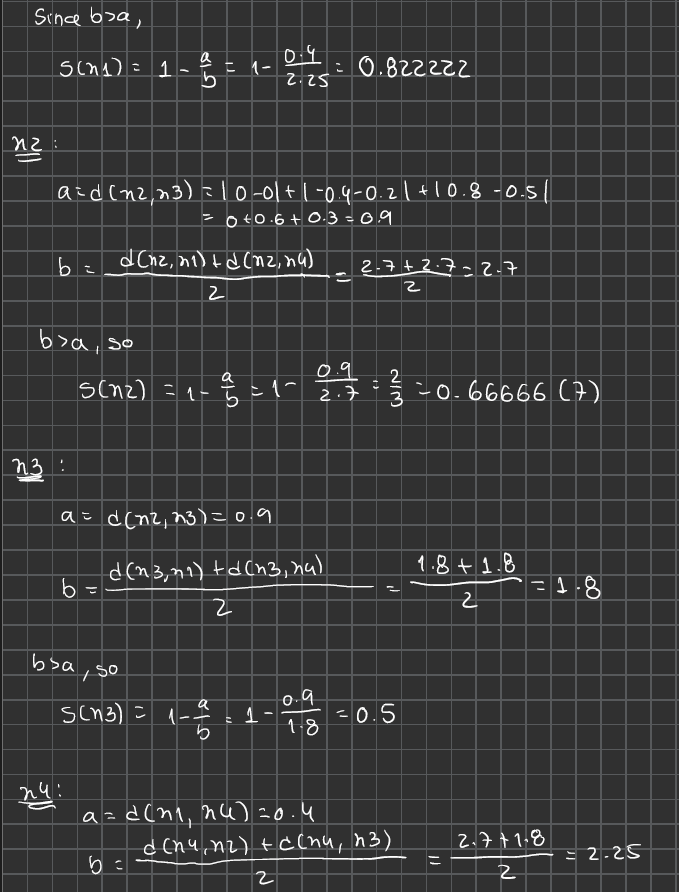 Since b>a,
S(n1) = 1 - a/b = 1 - 0.4/2.25 = 0.822222
n2 :
a = d(n2, n3) = |0-0| + |-0.4-0.2| + |0.8-0.5|
= 0+0.6+0.3 = 0.9
b = (d(n2, n1) + d(n2, n4))/2 = (2.7+2.7)/2 = 2.7
b>a, so
S(n2) = 1 - a/b = 1 - 0.9/2.7 = 2/3 = 0.66666 (7)
n3 :
a = d(n2, n3) = 0.9
b = (d(n3, n1) + d(n3, n4))/2 = (1.8 + 1.8)/2 = 1.8
b>a, so
S(n3) = 1 - a/b = 1 - 0.9/1.8 = 0.5
n4:
a = d(n1, n4) = 0.4
b = (d(n4, n2) + d(n4, n3))/2 = (2.7+1.8)/2 = 2.25